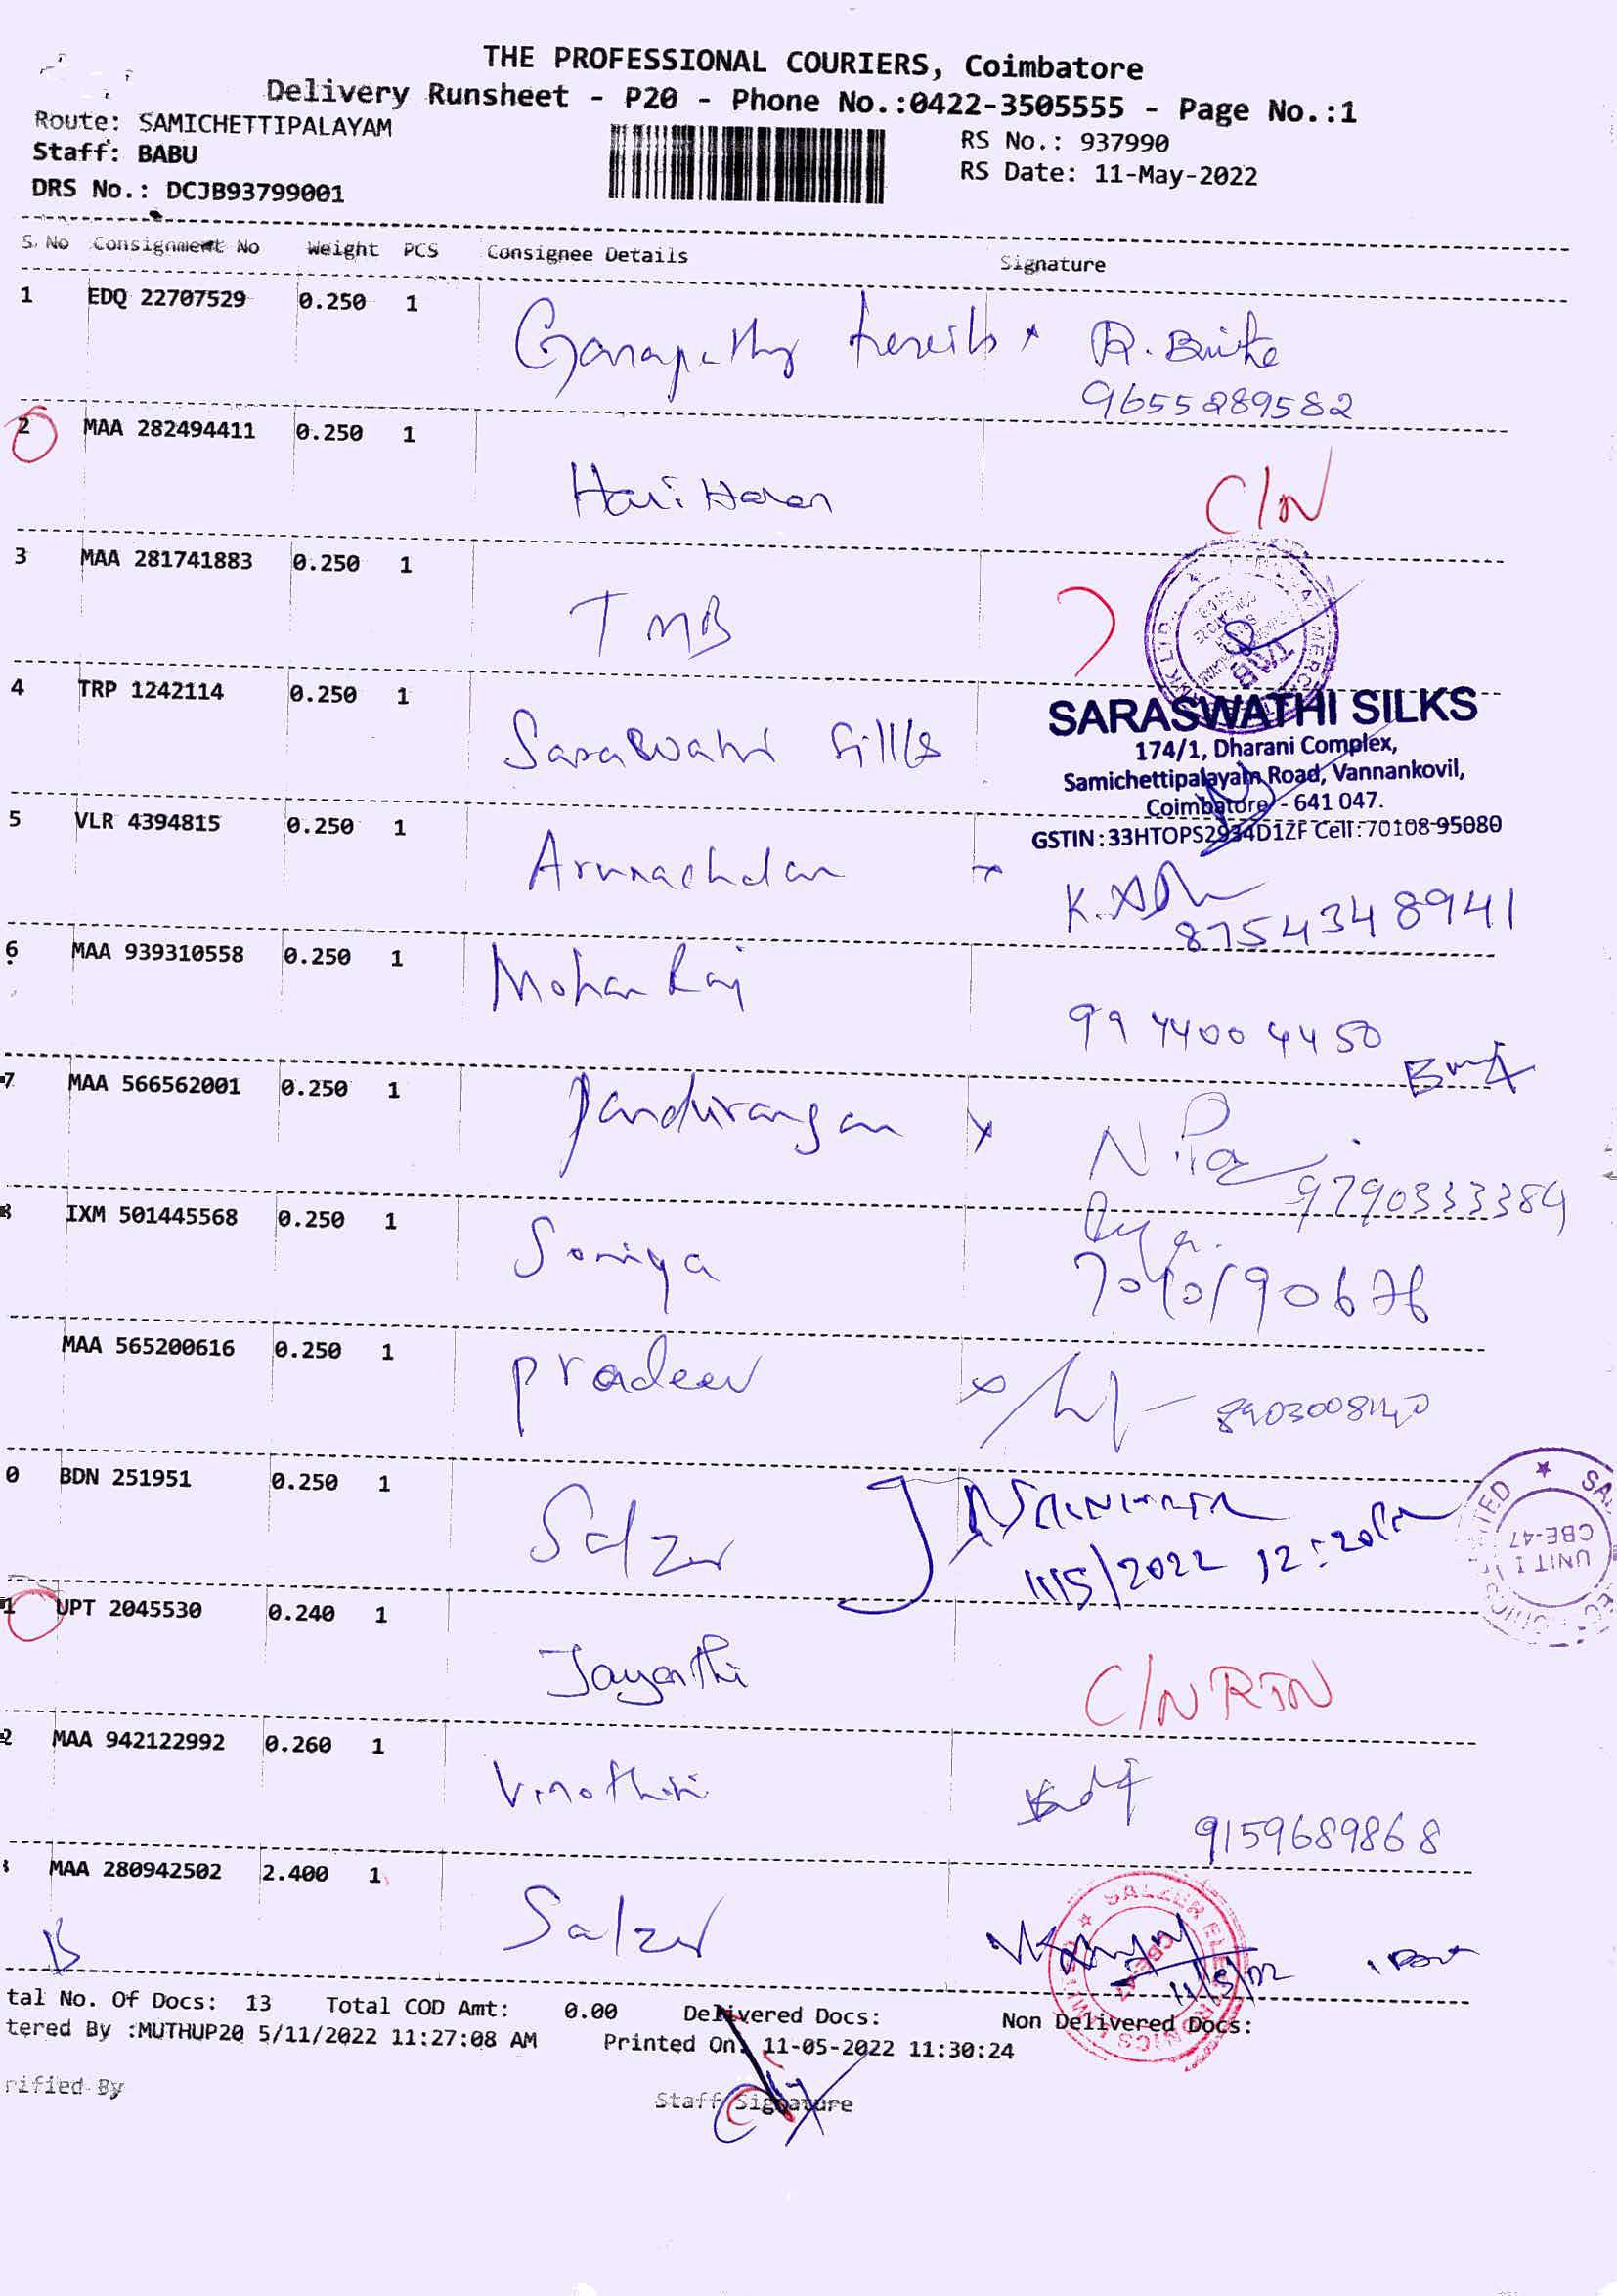 THE PROFESSIONAL COURIERS, Coimbatore
Delivery Runsheet - P20 - Phone No.:0422-3505555 - Page No.:1
Route: SAMICHETTIPALAYAM
RS No.: 937990
Staff: BABU
RS Date: 11-May-2022
DRS No.: DCJB93799001
S.No Consignment No Weight PCS Consignee Details Signature
1 EDQ 22707529 0.250 1
Ganapathy R.
9655289582
2 MAA 282494411 0.250 1
Hari Haran C/N
3 MAA 281741883 0.250 1
TMB
TMB
4 TRP 1242114 0.250 1
SARASWATHI SILKS
174/1, Dharani Complex,
Samichettipalayam Road, Vannankovil,
Coimbatore - 641 047.
GSTIN:33HTOPS2934D1ZF Cell:70108-95080
5 VLR 4394815 0.250 1
Arunachalam
8754348941
6 MAA 939310558 0.250 1
Mohan Raj
9944004450
7 MAA 566562001 0.250 1
Pandurangan
9790333384
8 IXM 501445568 0.250 1
Soniya
MAA 565200616 0.250 1
Pradeep
0 BDN 251951 0.250 1
Salzer
11/5/2022 12:20
UNIT I
CBE-47
1 UPT 2045530 0.240 1
Jayanthi C/N RTN
2 MAA 942122992 0.260 1
Vinothini
9159689868
MAA 280942502 2.400 1
Salzer
SALZER ELECTRONICS LIMITED
tal No. Of Docs: 13 Total COD Amt: 0.00 Delivered Docs: Non Delivered Docs:
tered By :MUTHUP20 5/11/2022 11:27:08 AM Printed On: 11-05-2022 11:30:24
rified By Staff Signature